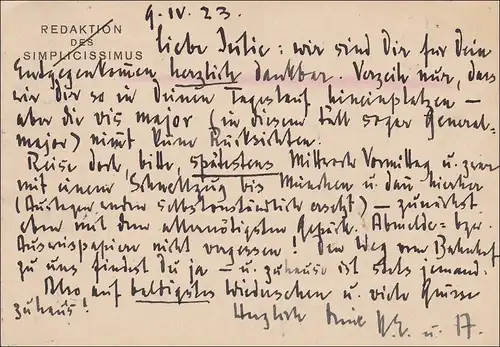 REDAKTION
DES
SIMPLICISSIMUS
9. IV. 23.
liebe Julie: wir sind Dir für Dein
Entgegenkommen herzlich dankbar. Verzeih nur, dass
wir Dir so in Deinen Tageslauf hineinplatzen –
aber die vis major (in diesem Fall sogar General-
major) nimmt keine Rücksichten.
Reise doch, bitte, spätestens Mittwoch Vormittag u. zwar
mit einem Schnellzug bis München u. dann hierher
(Auslagen werden selbstverständlich ersetzt) – zunächst
eben mit dem allernötigsten Gepäck. Abmelde- bzw.
Ausweispapiere nicht vergessen! Den Weg vom Bahnhof
zu uns findest Du ja – u. zuhause ist stets jemand.
Also auf baldigstes Wiedersehen u. viele Grüsse
zuhaus!
Herzlich Deine u.